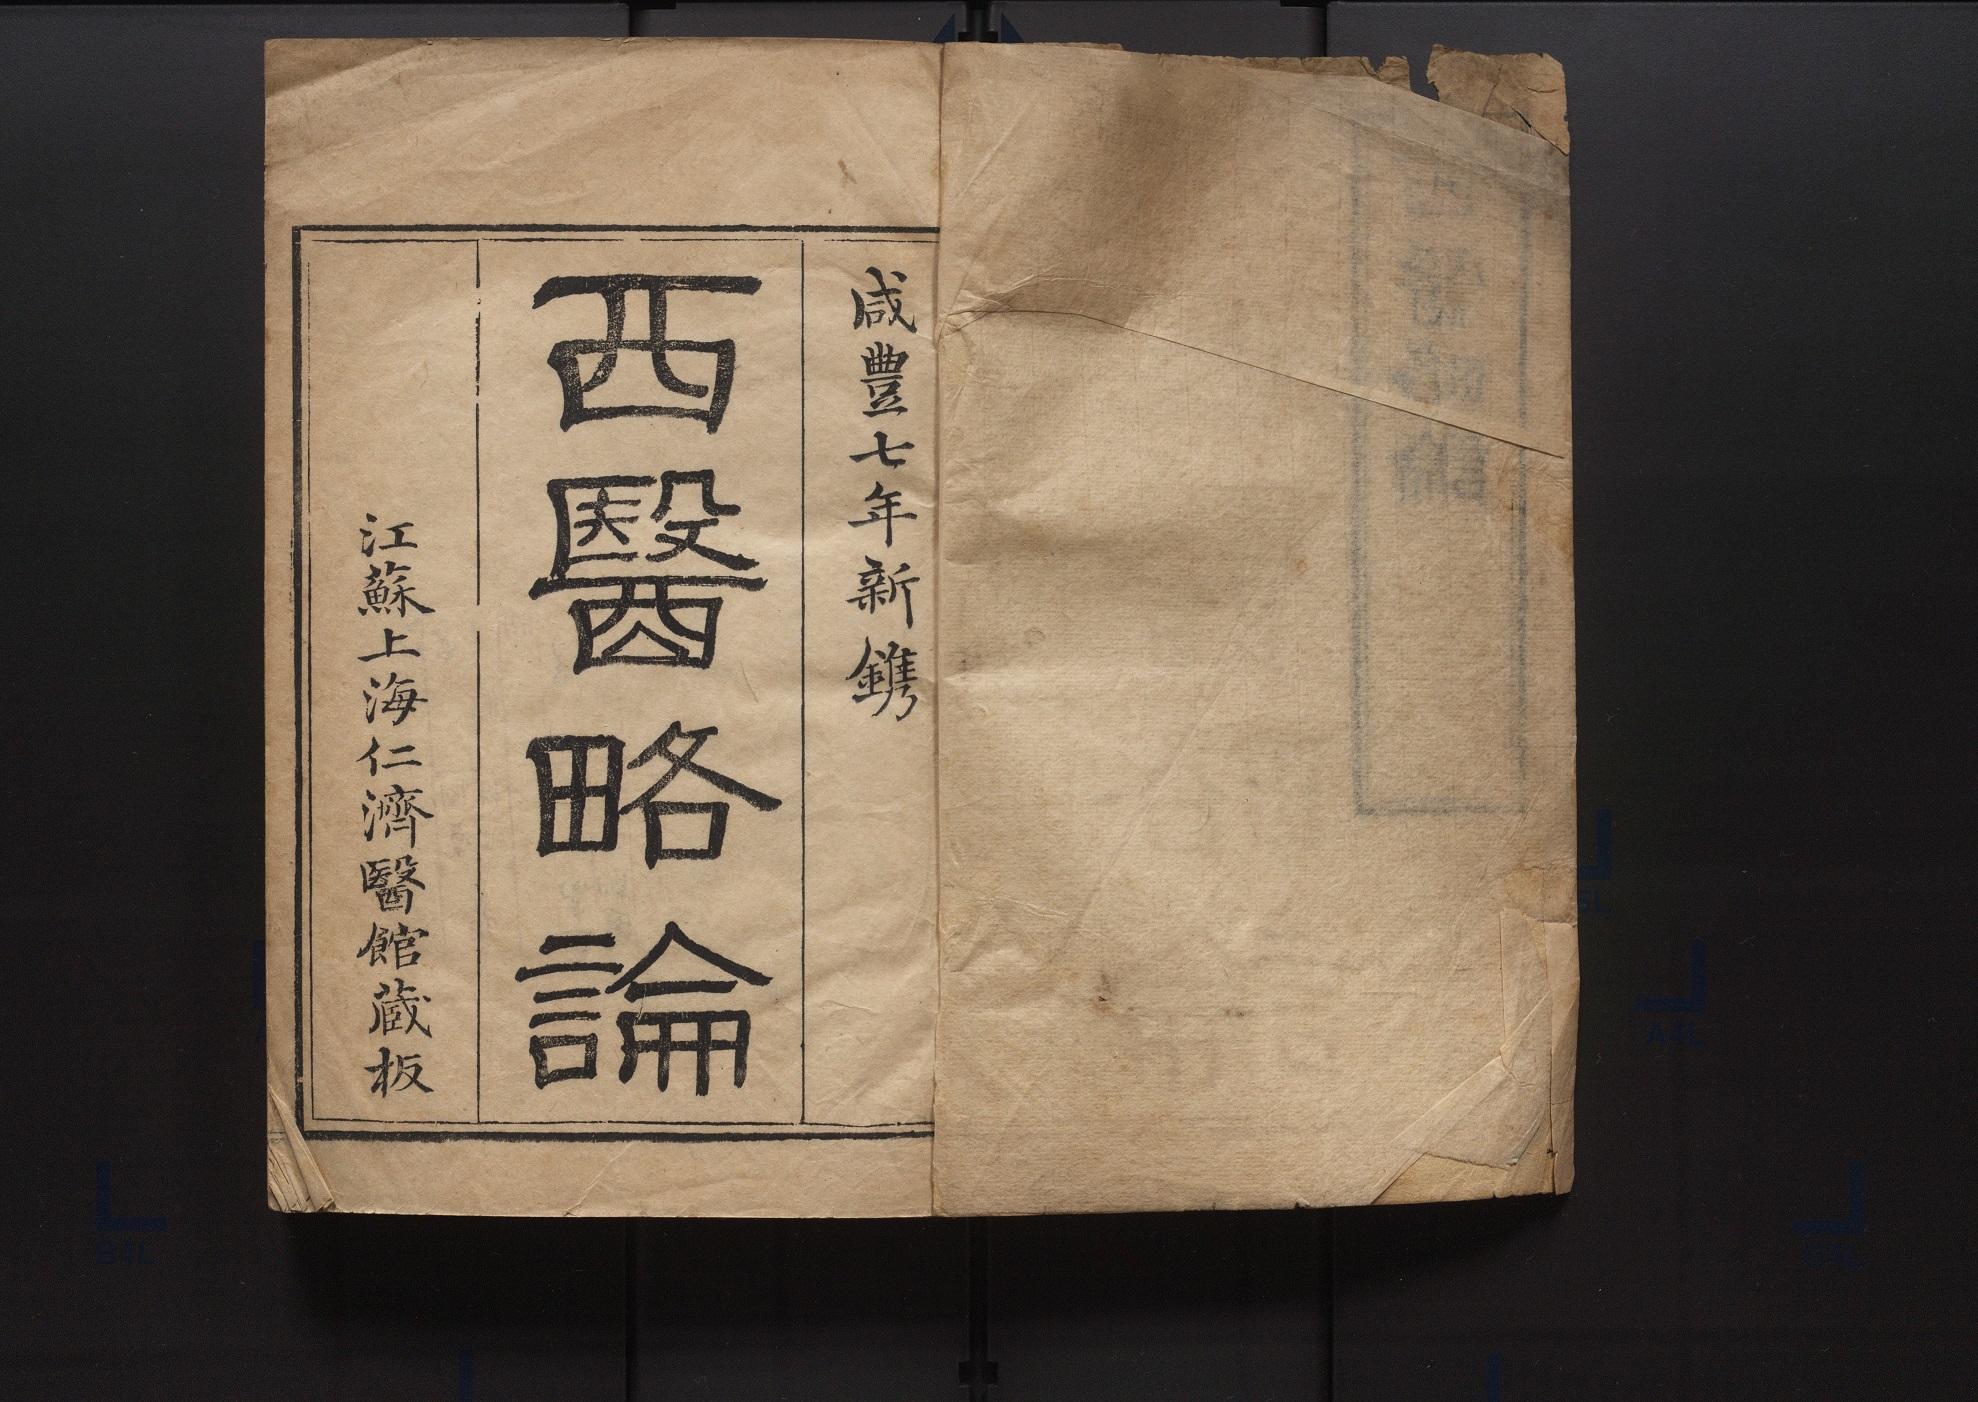 咸豐七年新鐫
西醫略論
江蘇上海仁濟醫館蔵板